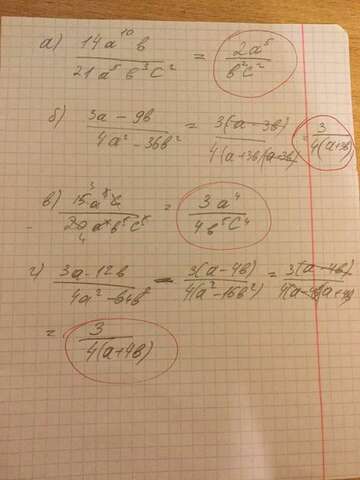 а) 14a¹⁰b / 21a⁵b³c² = 2a⁵ / b²c²
б) 3a - 9b / 4a² - 36b² = 3(a - 3b) / 4(a+3b)(a+3b) = 3 / 4(a+3b)
в) = 3a⁴ / 4b⁵c⁴
г) 3a - 12b / 4a² - 64b² = 3(a - 4b) / 4(a² - 16b²) = 3(a - 4b) / 4(a - 4b)(a+4b)
= 3 / 4(a+4b)